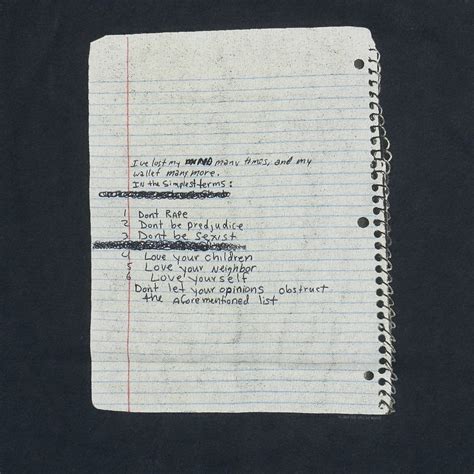 I've lost my MIND many times, and my
wallet many more.
IN the simplest terms:
1 Dont RAPE
2 Dont be predjudice
3 Dont be sexist
4 Love your children
5 Love your Neighbor
6 Love yourself
Dont let your opinions obstruct
the Aforementioned list